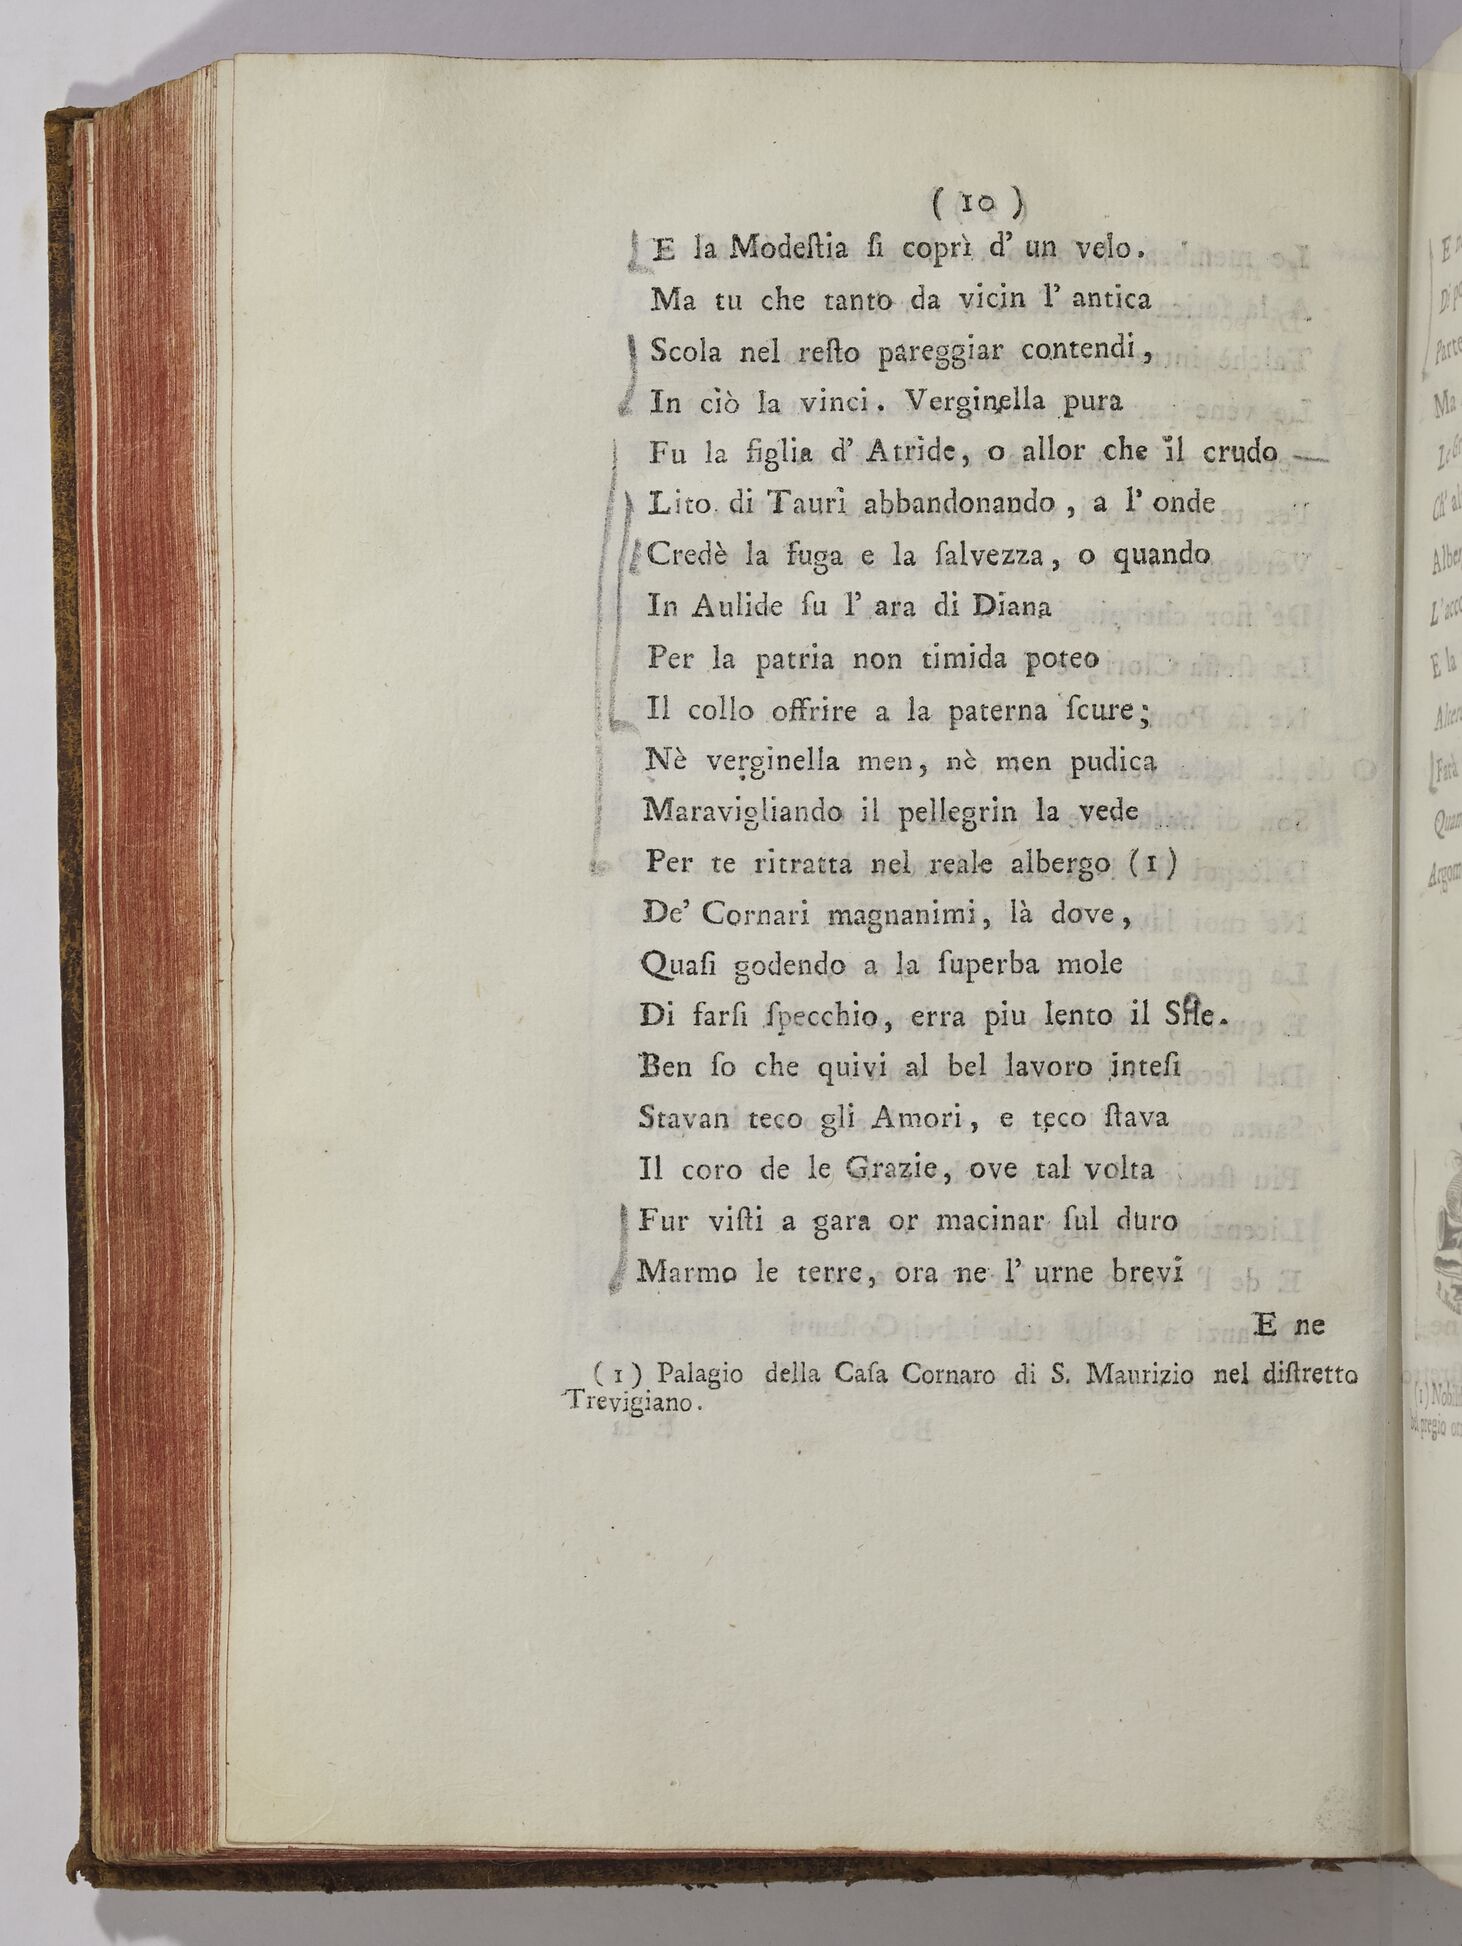 ( 10 )
E la Modeſtia ſi coprì d' un velo.
Ma tu che tanto da vicin l' antica
Scola nel reſto pareggiar contendi,
In ciò la vinci. Verginella pura
Fu la figlia d' Atride, o allor che il crudo
Lito di Tauri abbandonando, a l' onde
Credè la fuga e la ſalvezza, o quando
In Aulide ſu l' ara di Diana
Per la patria non timida poteo
Il collo offrire a la paterna ſcure;
Nè verginella men, nè men pudica
Maravigliando il pellegrin la vede
Per te ritratta nel reale albergo (1)
De' Cornari magnanimi, là dove,
Quaſi godendo a la ſuperba mole
Di farſi ſpecchio, erra piu lento il
Ben ſo che quivi al bel lavoro inteſi
Stavan teco gli Amori, e teco ſtava
Il coro de le Grazie, ove tal volta
Fur viſti a gara or macinar ſul duro
Marmo le terre, ora ne l' urne brevi
E ne
(1) Palagio della Caſa Cornaro di S. Maurizio nel diſtretto
Trevigiano.
E
Parte
Ma
E la